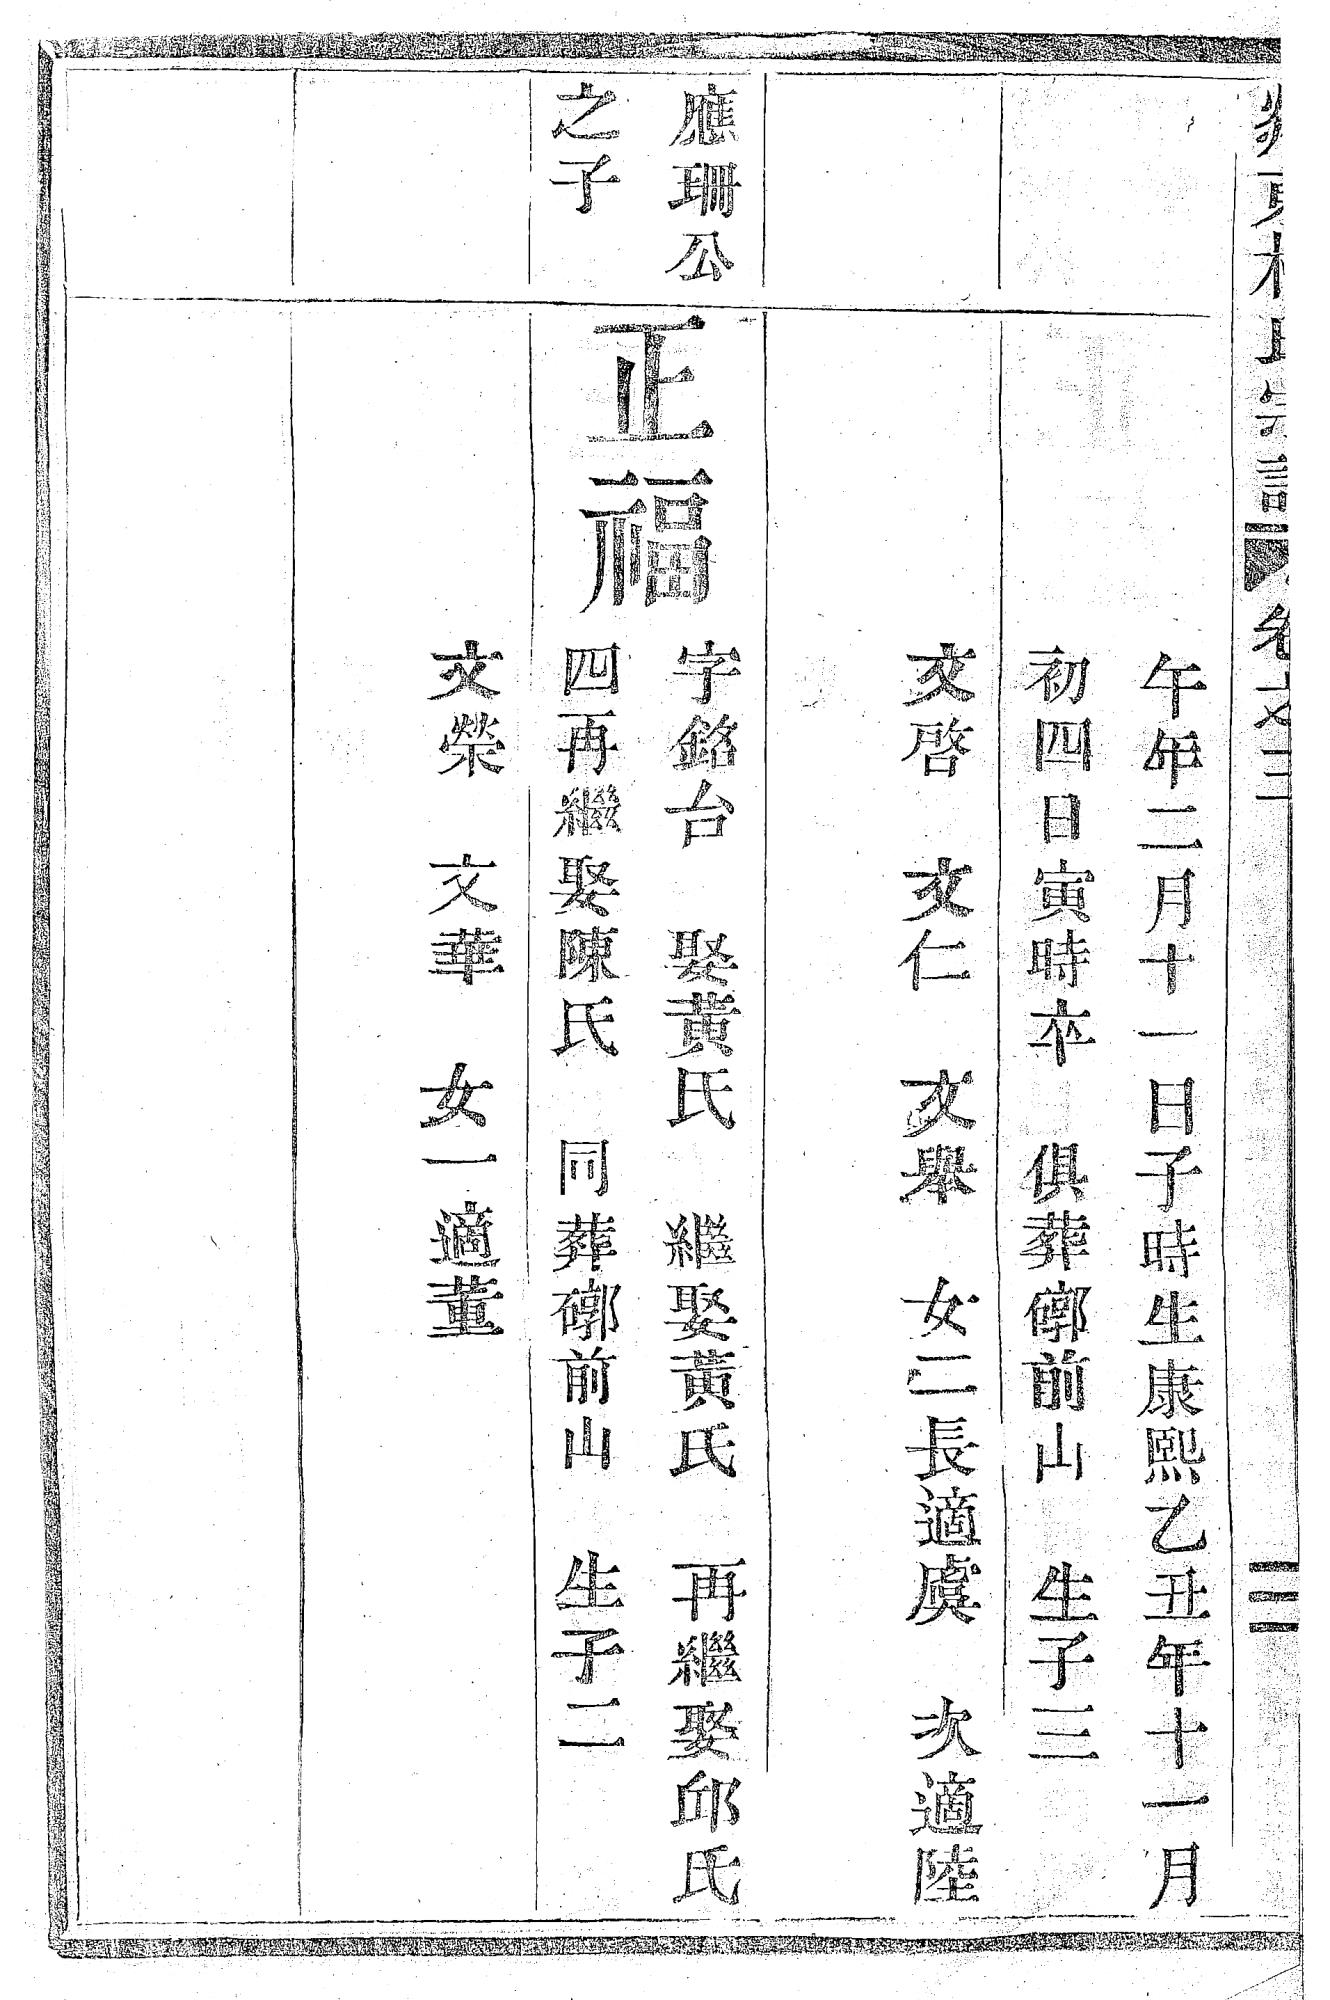 午年二月十一日子時生康熙乙丑年十一月
初四日寅時卒 俱葬𨻶前山 生子三
文啓 文仁 文舉 女二長適虞 次適陸
應珊公
之子
正福
字銘台 娶黃氏 繼娶黃氏 再繼娶邱氏
四再繼娶陳氏 同葬前山 生子二
文榮 文華 女一適董
氏宗譜 卷之二